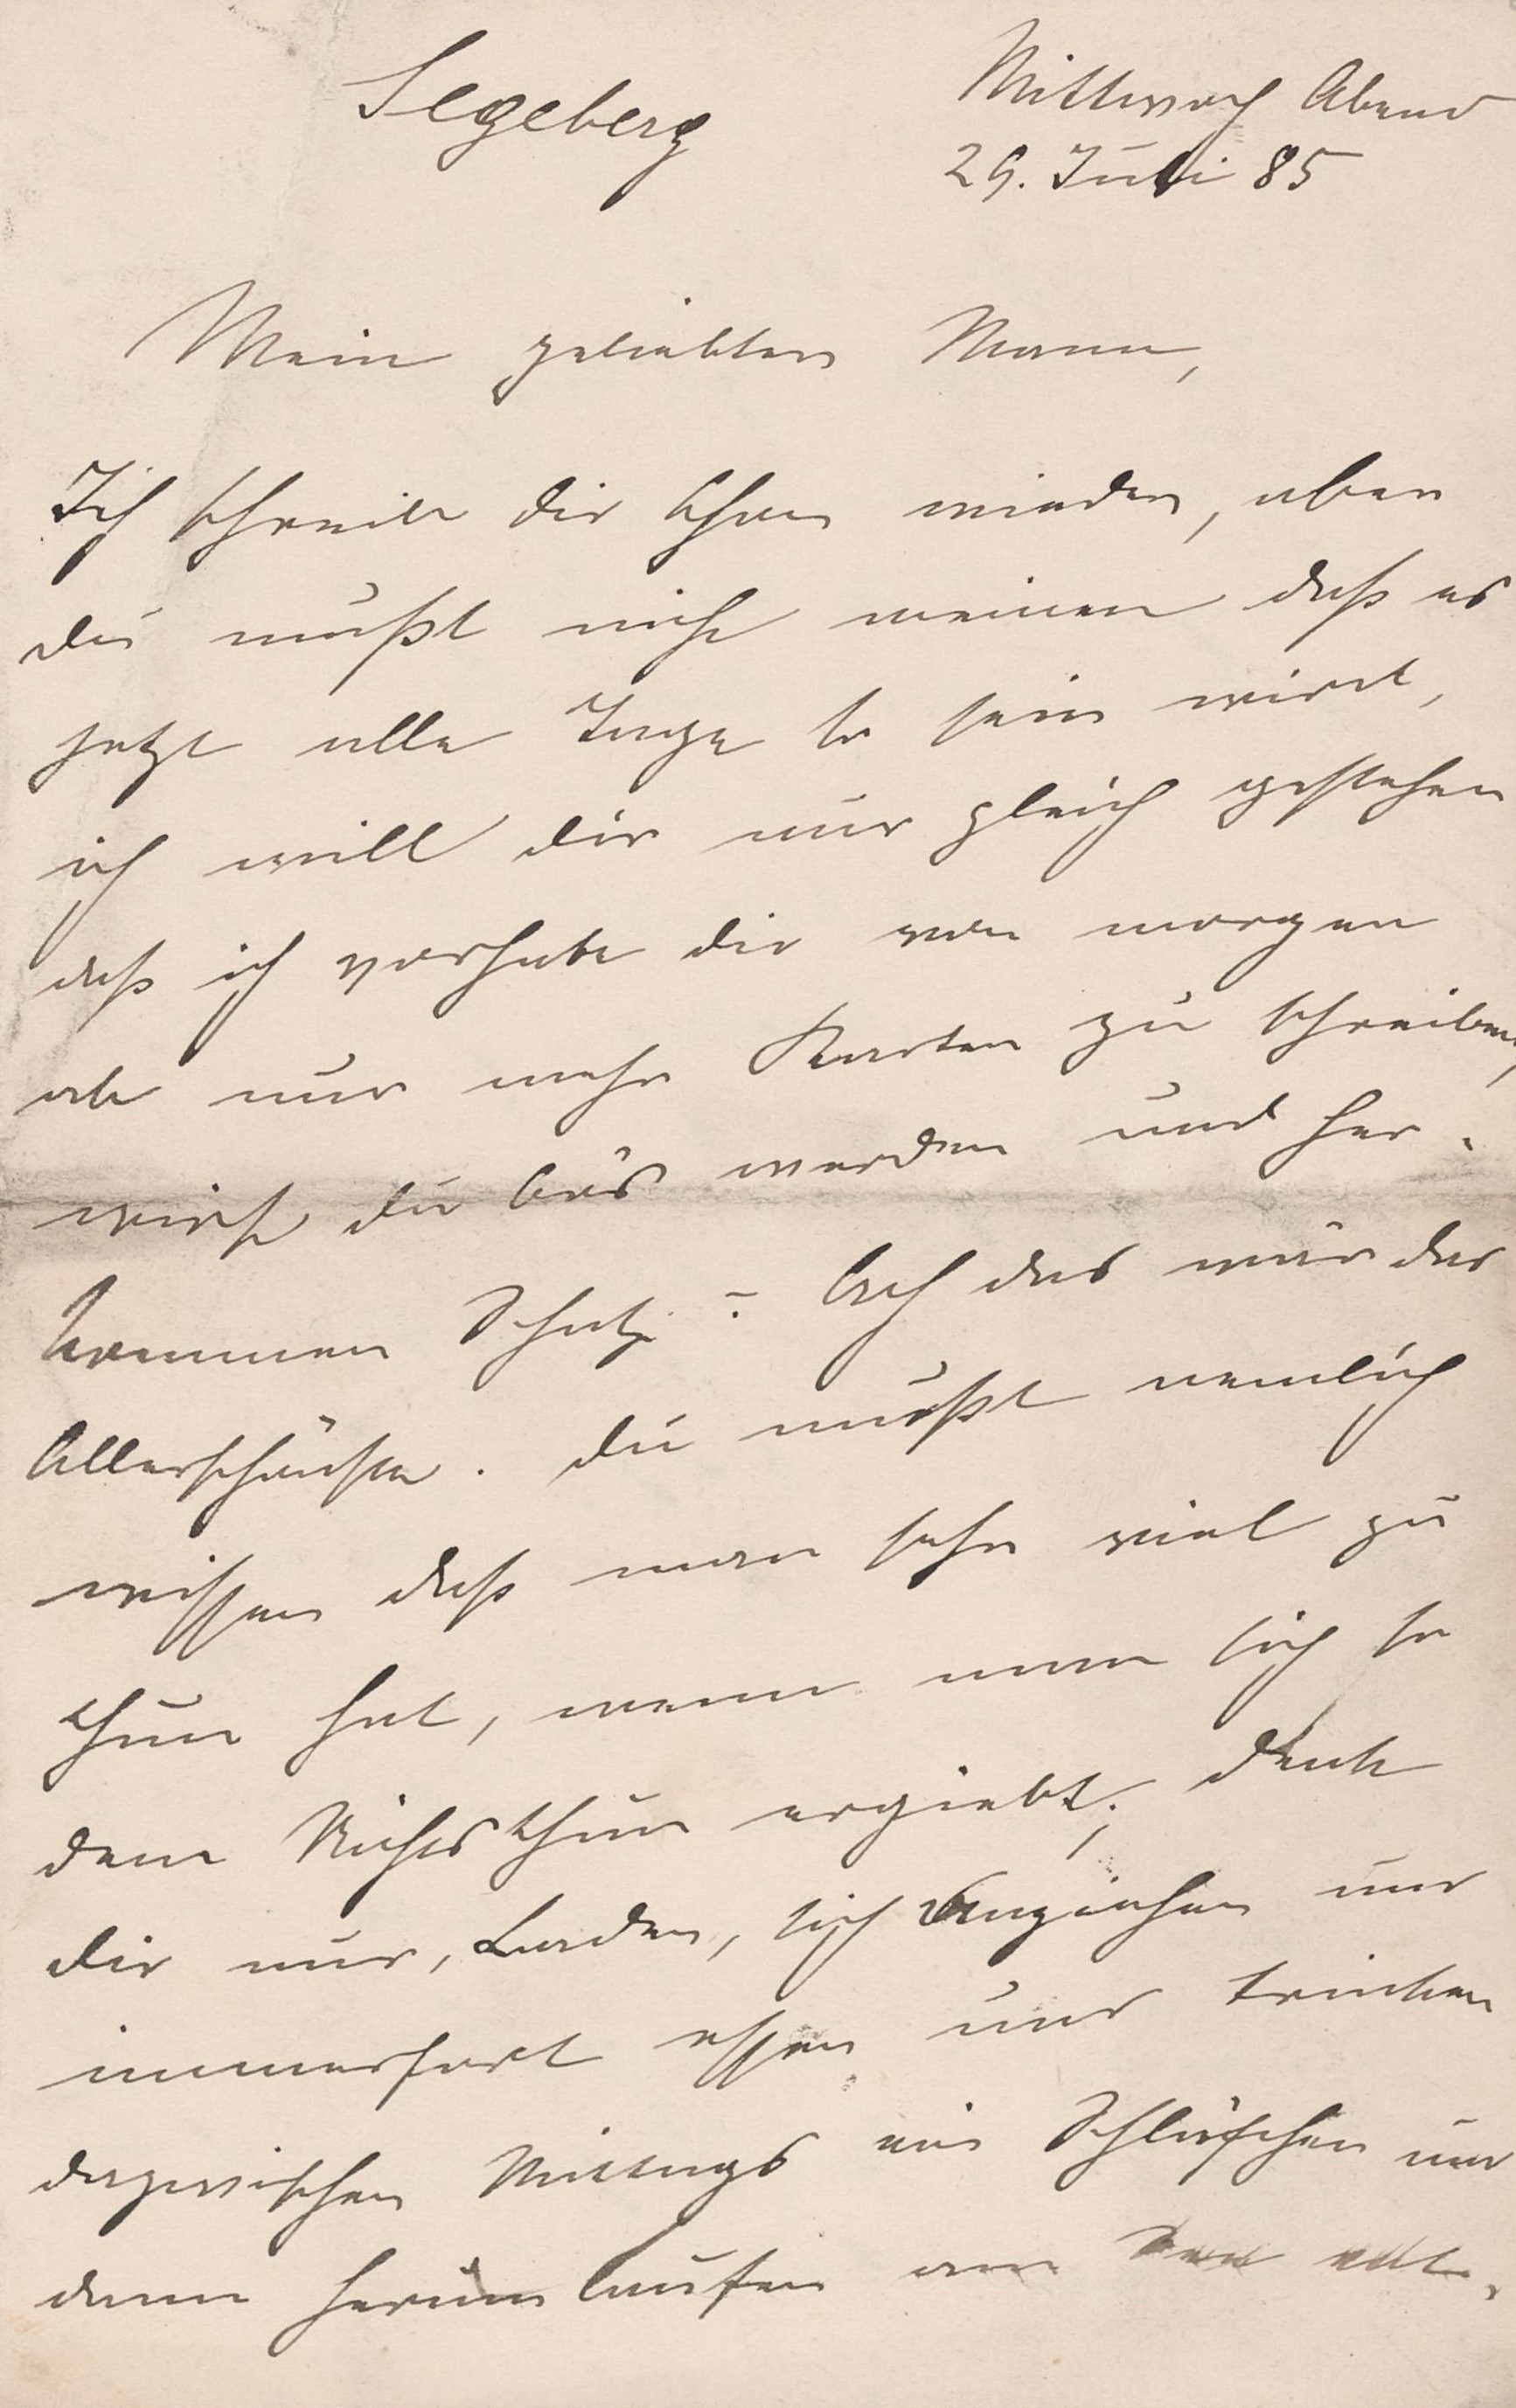 Segeberg
Mittwoch Abend
29. Juli 85
Mein geliebter Mann,
Ich schreibe dir schon wieder, aber
du mußt nicht meinen daß es
jetzt alle Tage so sein wird,
ich will dir nur gleich gestehen
daß ich vorhabe dir von morgen
ab nur mehr Karten zu schreiben,
wirst du bös werden und her-
kommen Schatz? Ach das wär das
Allerschönste. Du mußt nemlich
wissen daß man sehr viel zu
thun hat, wenn man sich so
dem Nichtsthun ergiebt; denk
dir nur, baden, sich anziehen und
immerfort essen und trinken
dazwischen Mittags ein Schläfchen und
dann herum laufen am See